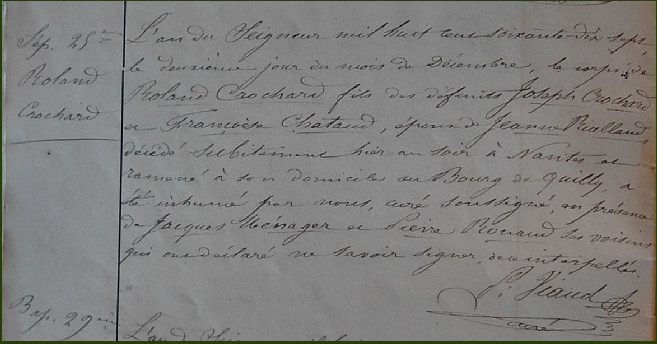 Sep. 25me
Roland
Crochard
L'an du Seigneur mil huit cent soixante-dix sept,
le deuxième jour du mois de Décembre, le corps de
Roland Crochard fils des défunts Joseph Crochard
et Françoise Chataud, époux de Jeanne Rialland,
décédé subitement hier au soir à Nantes et
ramené à son domicile au Bourg de Quilly, a
été inhumé par nous, curé soussigné, en présence
de Jacques Ménager et Pierre Rouaud ses voisins
qui ont déclaré ne savoir signer, de ce interpellés.
P. Viaud
curé
Bap. 29me
L'an du